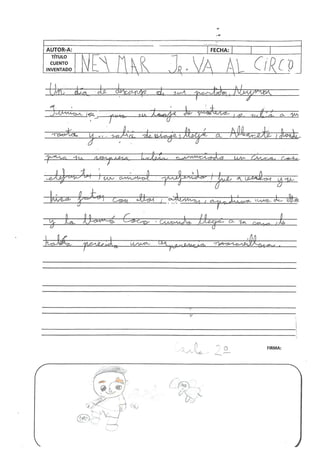 AUTOR-A: FECHA:
TÍTULO CUENTO INVENTADO NEYMAR Jr. VA AL CIRCO
Un día de descanso de sus partidos, Neymar
Junior se puso su traje de motero, se subió a su
moto y... salió de viaje; llegó a Albacete, donde
para su sorpresa habían anunciado un circo con
elefantes, su animal preferido; fue a verlos y se
hizo fotos con ellos, además, apadrinó uno de ellos
y lo llamó Coco. Cuando llegó a su casa le
había parecido una experiencia maravillosa.
2º
FIRMA: